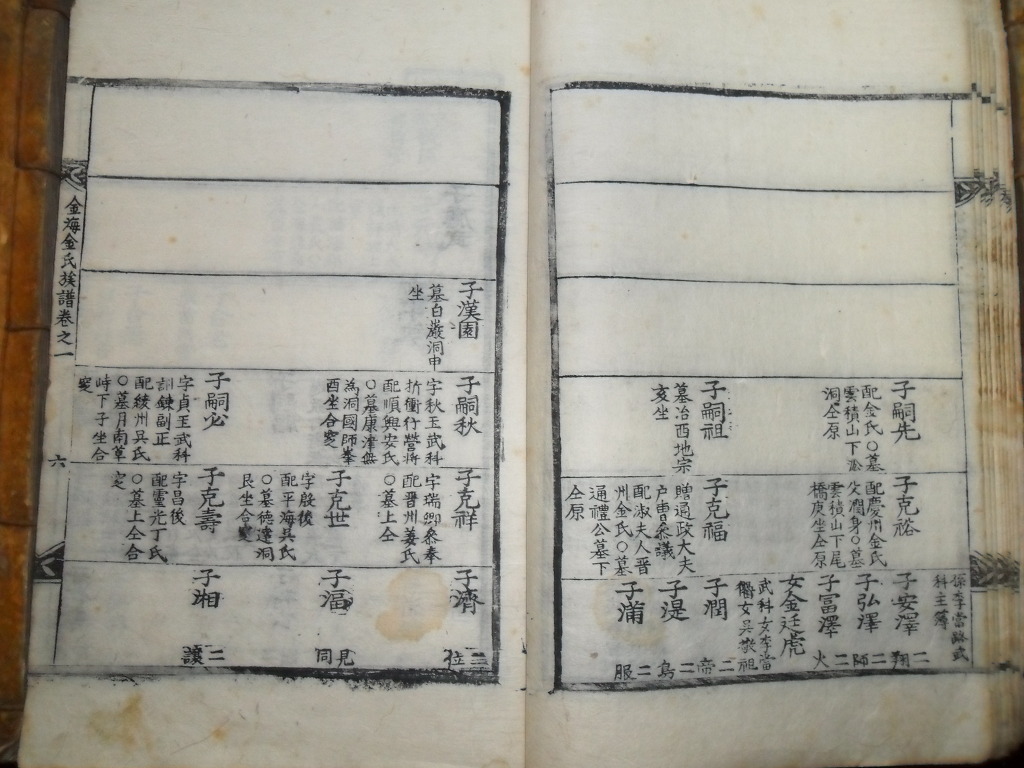 子嗣先
配金氏〇墓
雲積山下
洞仝原
子嗣祖
墓治西地宗
亥坐
子克裕
配慶州金氏
父潤身〇墓
雲積山下尾
橋庚坐仝原
子克福
贈通政大夫
戶曹參議
配淑夫人晋
州金氏〇墓
通禮公墓下
仝原
孫李當路武
科主簿
子安澤
二翔
子弘澤
二師
子冨澤
二火
女金廷虎
武科女李當
女吳敬祖
子潤
二帝
子湜
二鳥
子滿
二服
子漢園
墓白巖洞申
坐
子嗣秋
字秋玉武科
折衝行營將
配順興安氏
〇墓康津無
為洞國師峯
酉坐合窆
子嗣必
字貞玉武科
訓鍊副正
配綾州具氏
〇墓月南草
峙下子坐合
窆
子克祥
字瑞卿參奉
配晋州姜氏
〇墓上仝
子克世
字殷後
配平海吳氏
〇墓德蓮洞
艮坐合窆
子克壽
字昌後
配靈光丁氏
〇墓上仝合
窆
子濟
二位
子
見同
子湘
二讓
金海金氏族譜卷之一
六